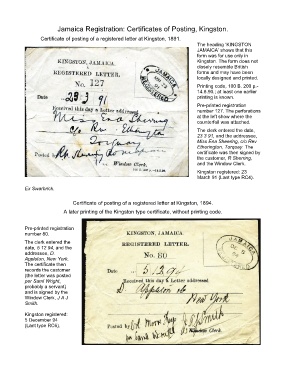 Jamaica Registration: Certificates of Posting, Kingston.
Certificate of posting of a registered letter at Kingston, 1891.
KINGSTON, JAMAICA.
REGISTERED LETTER.
No. 127
Date 23.3.91
Received this day a Letter addressed
Miss Ena Sherring
c/o Rev. Etherington
Torquay
Posted by
Window Clerk.
JAMAICA
The heading 'KINGSTON
JAMAICA' shows that this
form was for use only in
Kingston. The form does not
closely resemble British
forms and may have been
locally designed and printed.
Printing code, 100 B. 200 p.-
14.5.90.; at least one earlier
printing is known.
Pre-printed registration
number 127. The perforations
at the left show where the
counterfoil was attached.
The clerk entered the date,
23 3 91, and the addressee,
Miss Ena Sheering, c/o Rev
Etherington, Torquay. The
certificate was then signed by
the customer, R Sherring,
and the Window Clerk.
Kingston registered: 23
March 91 (Last type RC4).
Ex Swarbrick.
Certificate of posting of a registered letter at Kingston, 1894.
A later printing of the Kingston type certificate, without printing code.
Pre-printed registration
number 80.
The clerk entered the
date, 5 12 94, and the
addressee, D
Appleton, New York.
The certificate then
records the customer
(the letter was posted
per Saml Wright,
probably a servant)
and is signed by the
Window Clerk, J A J
Smith.
Kingston registered:
5 December 94
(Last type RC6).
KINGSTON, JAMAICA.
REGISTERED LETTER.
No. 80
Date 5.12.94
Received this day a Letter addressed
D. Appleton &
New York
Posted by
Window Clerk.
JAMAICA